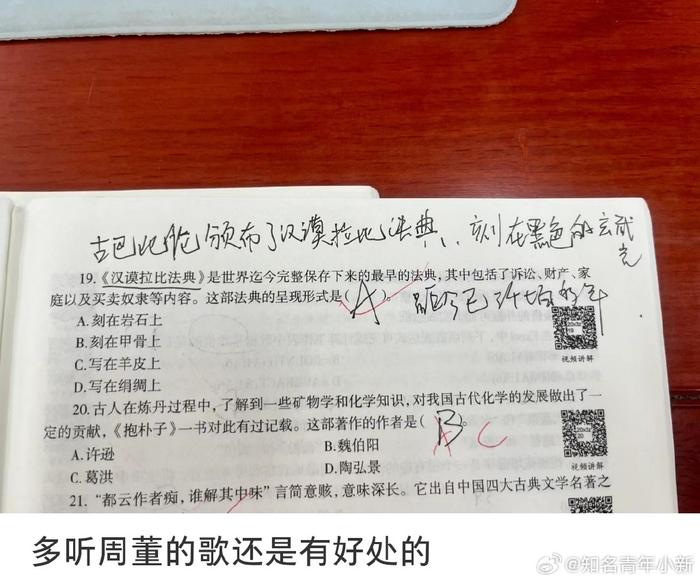 古巴比伦颁布了汉谟拉比法典、、刻在黑色的玄武
岩
19.《汉谟拉比法典》是世界迄今完整保存下来的最早的法典，其中包括了诉讼、财产、家
庭以及买卖奴隶等内容。这部法典的呈现形式是(A)。 距今已
A.刻在岩石上
B.刻在甲骨上
C.写在羊皮上
D.写在绢绸上
视频讲解
20.古人在炼丹过程中，了解到一些矿物学和化学知识，对我国古代化学的发展做出了一
定的贡献，《抱朴子》一书对此有过记载。这部著作的作者是(B)。 A C
A.许逊 B.魏伯阳
C.葛洪 D.陶弘景
视频讲解
21.“都云作者痴，谁解其中味”言简意赅，意味深长。它出自中国四大古典文学名著之
多听周董的歌还是有好处的
@知名青年小新